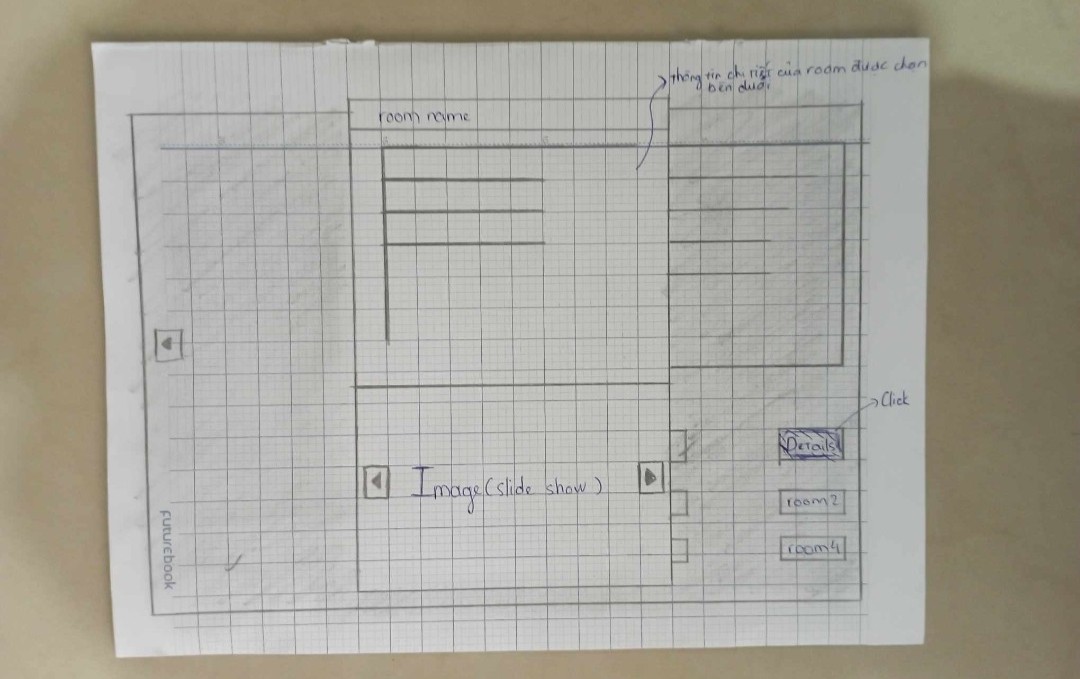 thông tin chi tiết của room được chọn
bên dưới
room name
Click
Details
Image (slide show)
room2
room4
FUTUREBOOK